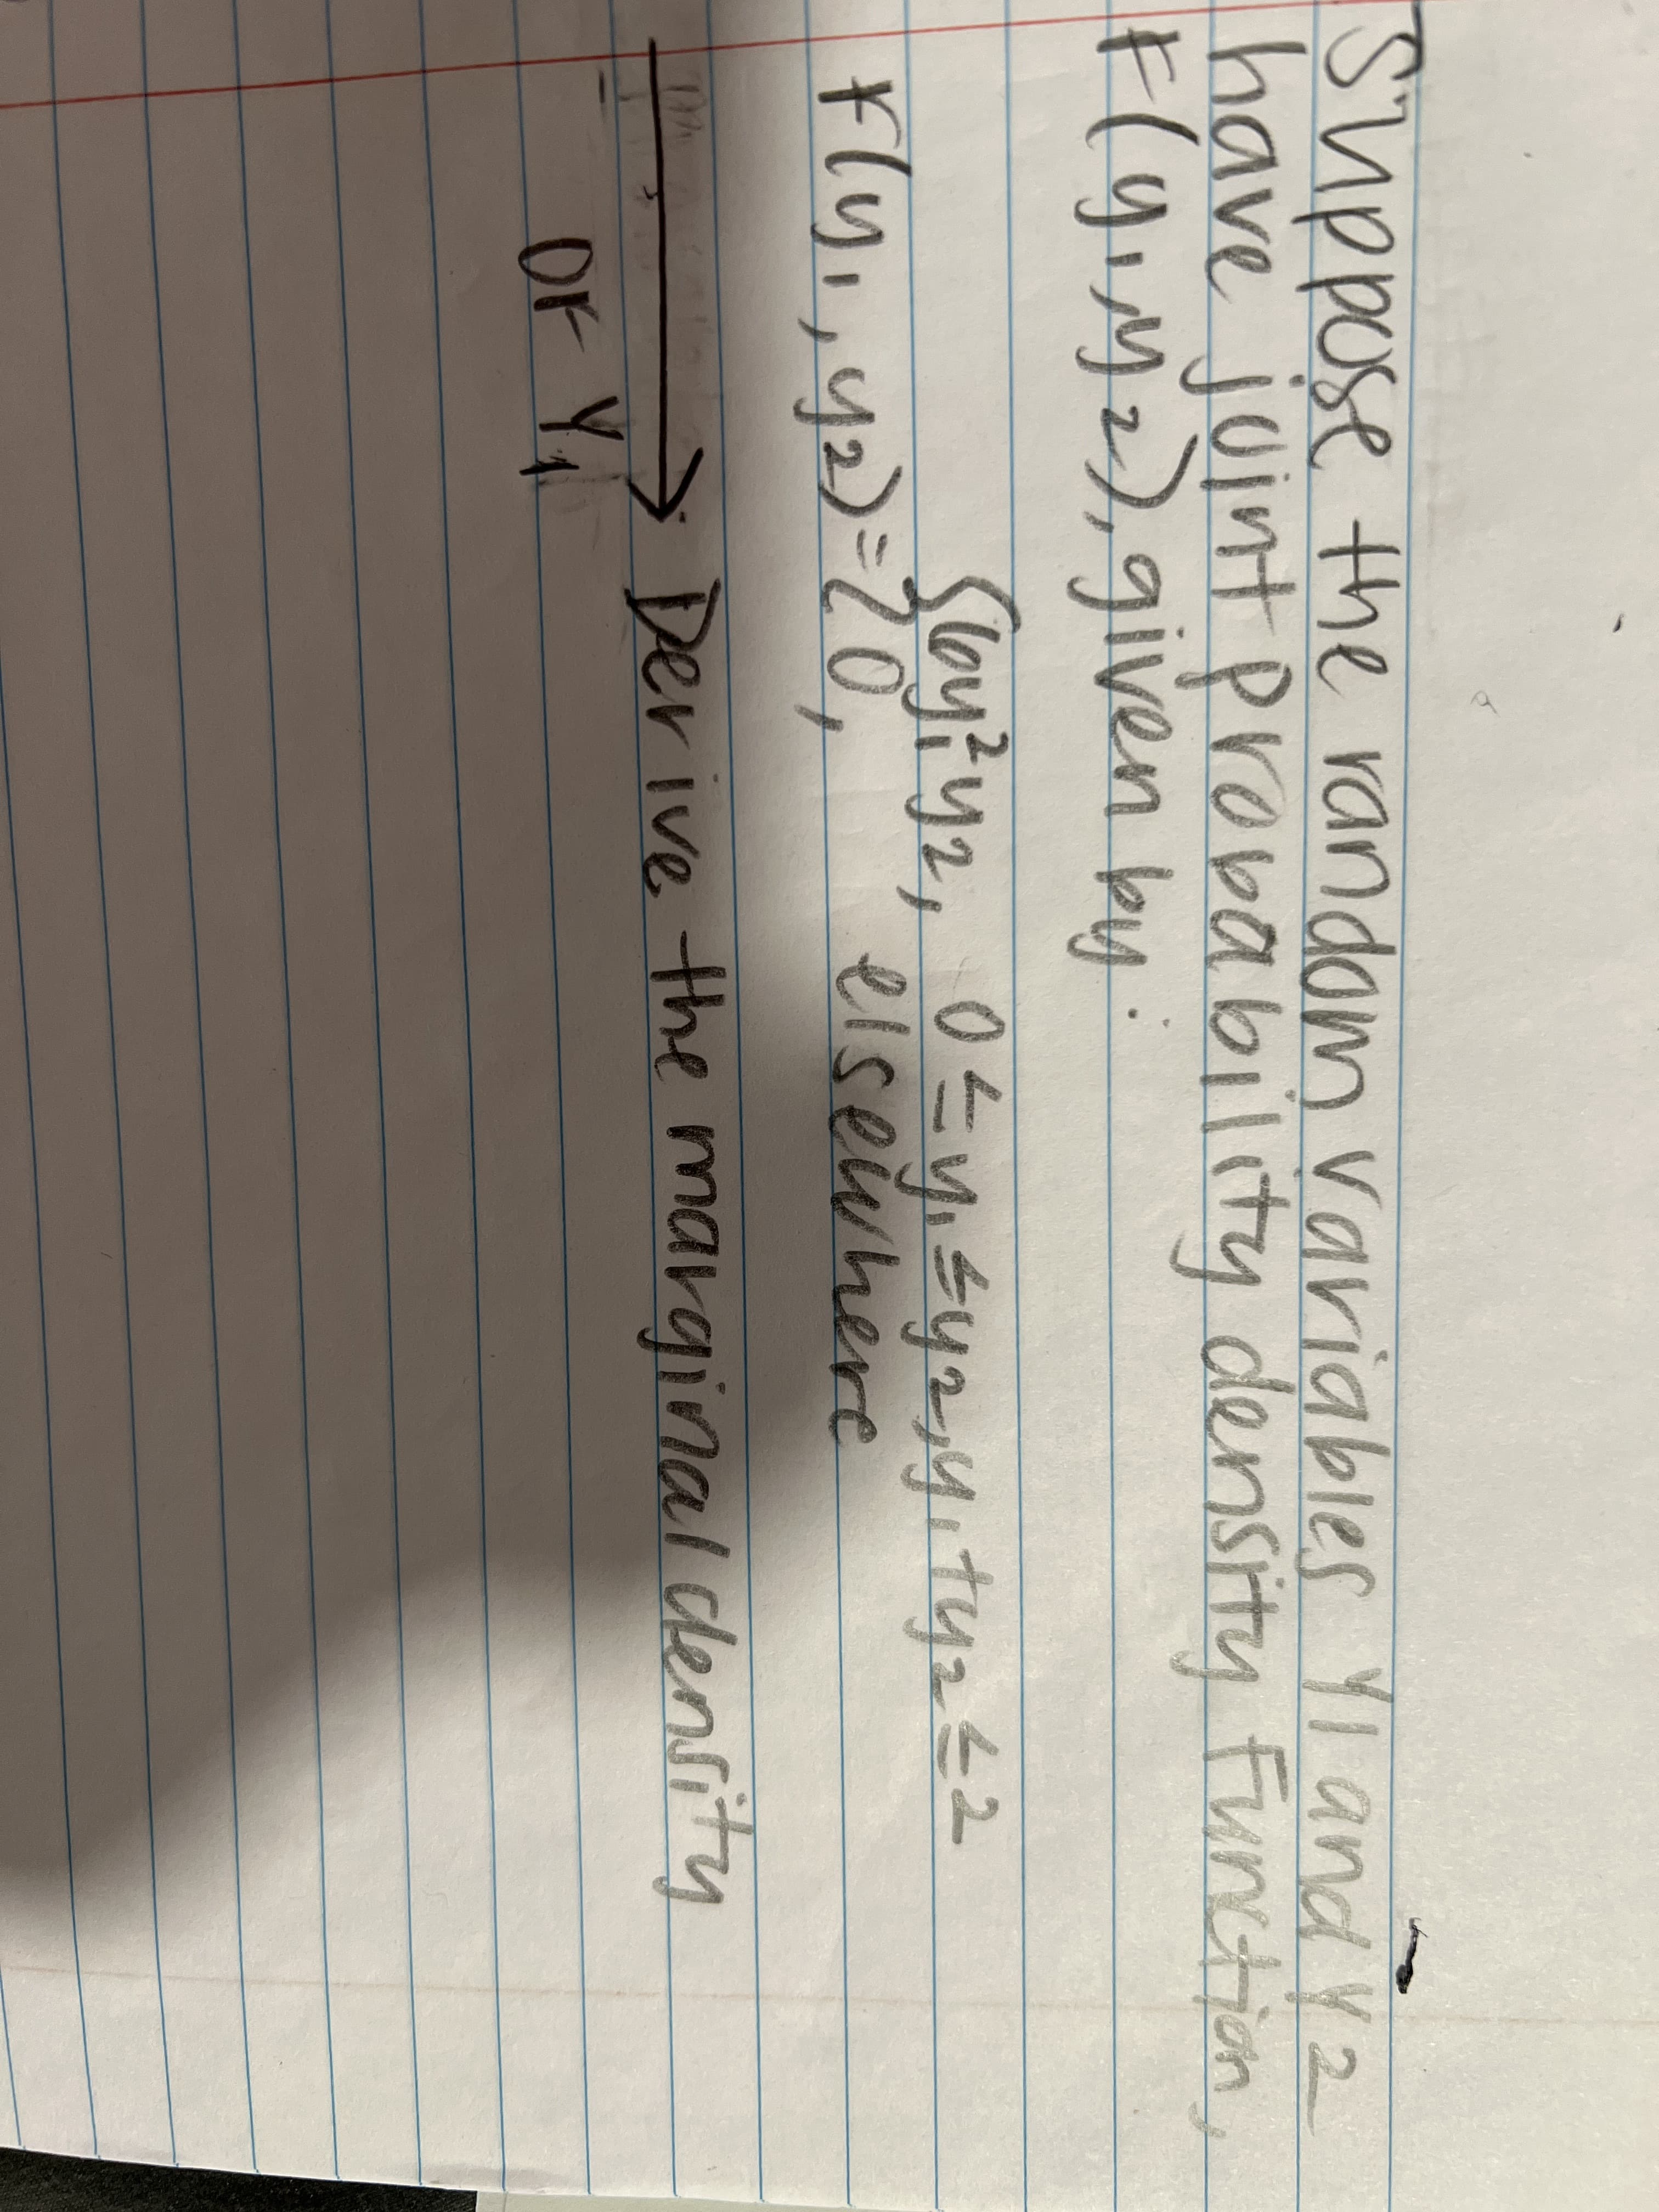 Suppose the random variables Y1 and Y2
have joint probability density Function,
F(y₁,y₂), given by:
{6y₁²y₂, 0≤y₁≤y₂,y₁+y₂≤2
F(y₁,y₂)={0, elsewhere
→ Derive the marginal density
OF Y₁